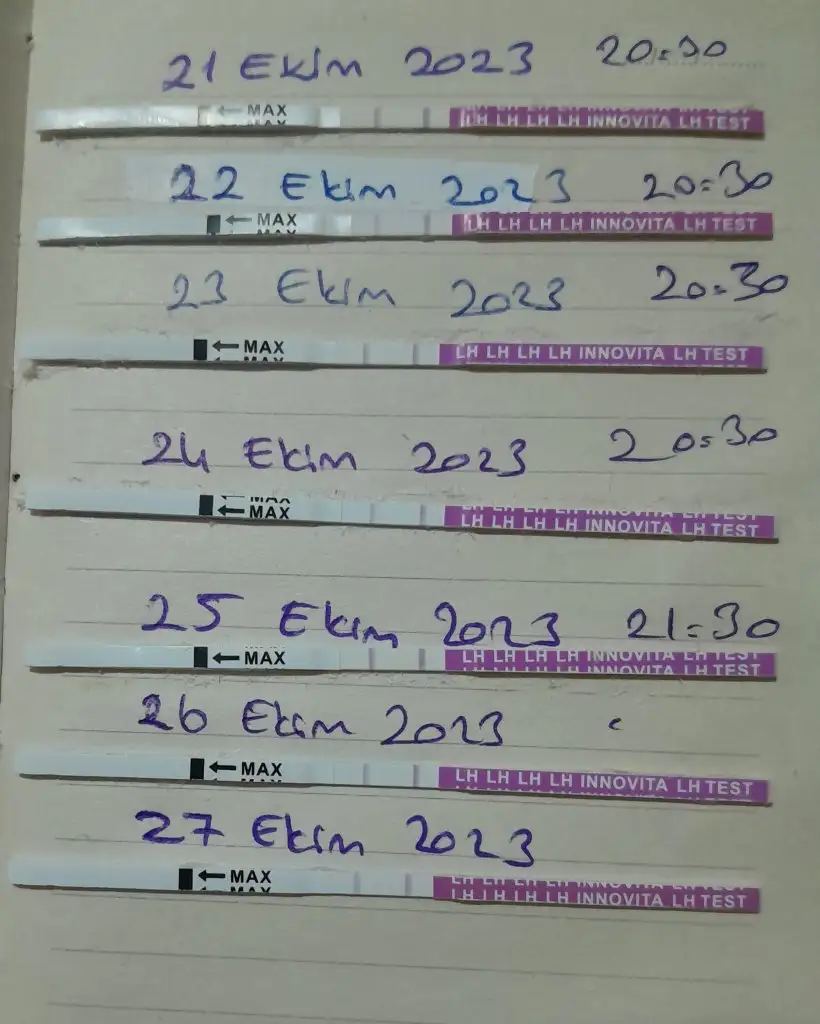 21 Ekim 2023 20:30
← MAX LH LH LH LH INNOVITA LH TEST
22 Ekim 2023 20:30
← MAX LH LH LH LH INNOVITA LH TEST
23 Ekim 2023 20:30
← MAX LH LH LH LH INNOVITA LH TEST
24 Ekim 2023 20:30
← MAX LH LH LH LH INNOVITA LH TEST
25 Ekim 2023 21:30
← MAX LH LH LH LH INNOVITA LH TEST
26 Ekim 2023
← MAX LH LH LH LH INNOVITA LH TEST
27 Ekim 2023
← MAX LH LH LH LH INNOVITA LH TEST